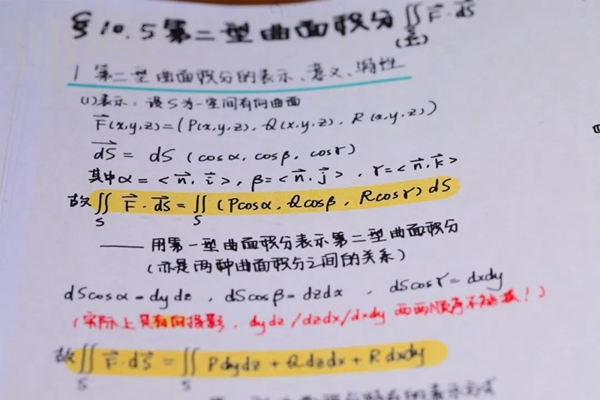 §10.5 第二型曲面积分 ∬ F⃗·dS⃗
(Σ)
1 第二型曲面积分的表示、意义、特性
(1)表示:设S为一空间有向曲面
F⃗(x,y,z)=(P(x,y,z), Q(x,y,z), R(x,y,z))
dS⃗ = dS (cosα, cosβ, cosγ)
其中α=<n⃗,i⃗>, β=<n⃗,j⃗>, γ=<n⃗,k⃗>
故∬ F⃗·dS⃗=∬ (Pcosα, Qcosβ, Rcosγ)dS
S S
—— 用第一型曲面积分表示第二型曲面积分
(亦是两种曲面积分之间的关系)
dScosα=dydz, dScosβ=dzdx, dScosγ=dxdy
(实际上是有向投影, dydz/dzdx/dxdy 两两顺序不能换!)
故∬ F⃗·dS⃗ =∬ Pdydz+Qdzdx+Rdxdy
S S